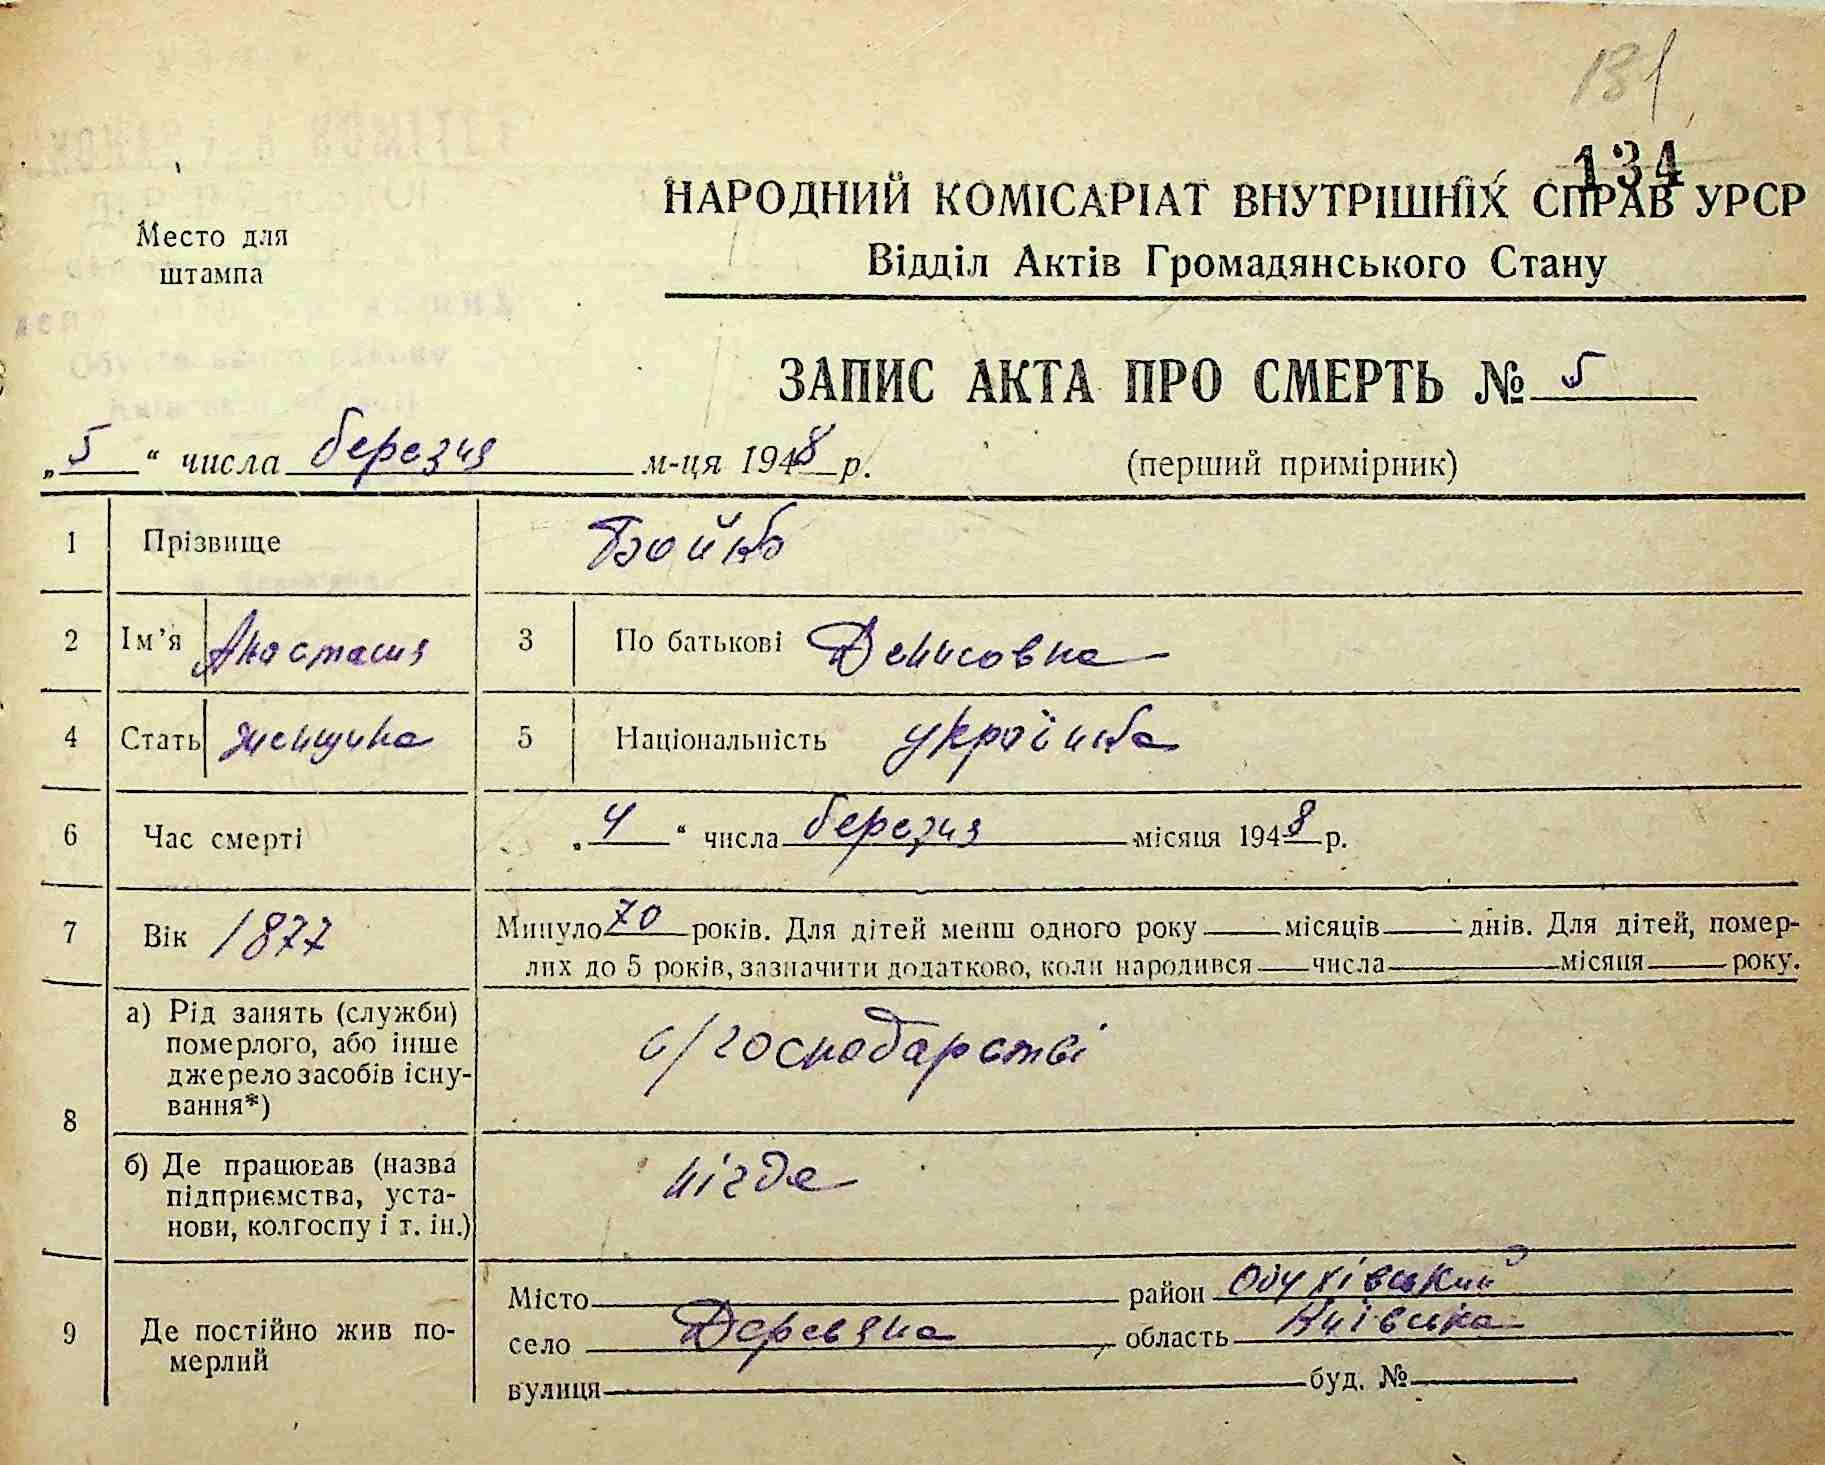 131
134
НАРОДНИЙ КОМІСАРІАТ ВНУТРІШНІХ СПРАВ УРСР
Место для
штампа
Відділ Актів Громадянського Стану
ЗАПИС АКТА ПРО СМЕРТЬ № 5
„5“ числа березня м-ця 1948 р.
(перший примірник)
1 Прізвище Бойко
2 Ім’я Анастасия 3 По батькові Денисовна
4 Стать женщина 5 Національність українка
6 Час смерті „4“ числа березня місяця 1948 р.
7 Вік 1877 Минуло 70 років. Для дітей менш одного року місяців днів. Для дітей, помер-
лих до 5 років, зазначити додатково, коли народився числа місяця року.
8 а) Рід занять (служби)
померлого, або інше
джерело засобів існу-
вання*)
с/господарстві
б) Де працював (назва
підприємства, уста-
нови, колгоспу і т. ін.)
нігде
9 Де постійно жив по-
мерлий
Місто район Обухівський
село Деревяна область Київська
вулиця буд. №